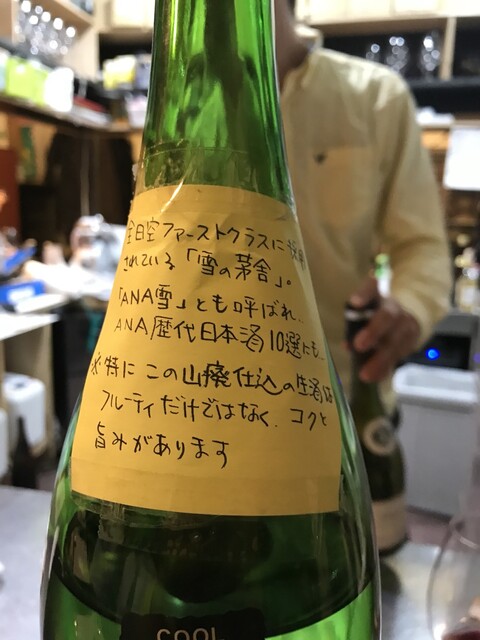 全日空ファーストクラスに採用
されている「雪の茅舎」。
「ANA雪」とも呼ばれ
ANA歴代日本酒10選にも
※特にこの山廃仕込の生酒は
フルーティだけではなく、コクと
旨みがあります
COOL